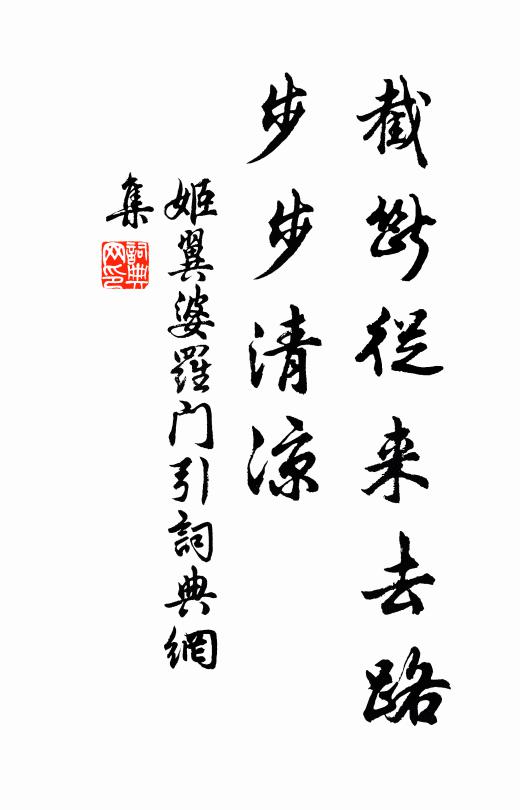 截斷從来去路
步步清涼
姬翼婆羅門引詞典網
集
詞典网印